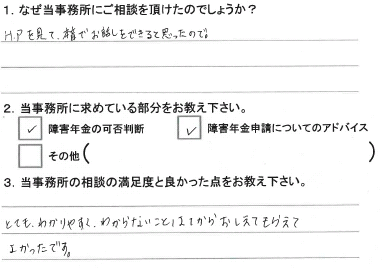 1. なぜ当事務所にご相談を頂けたのでしょうか?
H.Pを見て、皆でお話しをできると思ったので。
2. 当事務所に求めている部分をお教え下さい。
✓ 障害年金の可否判断 ✓ 障害年金申請についてのアドバイス
その他( )
3. 当事務所の相談の満足度と良かった点をお教え下さい。
とても、わかりやすく、わからないことは おしえてもらえて
よかったです。